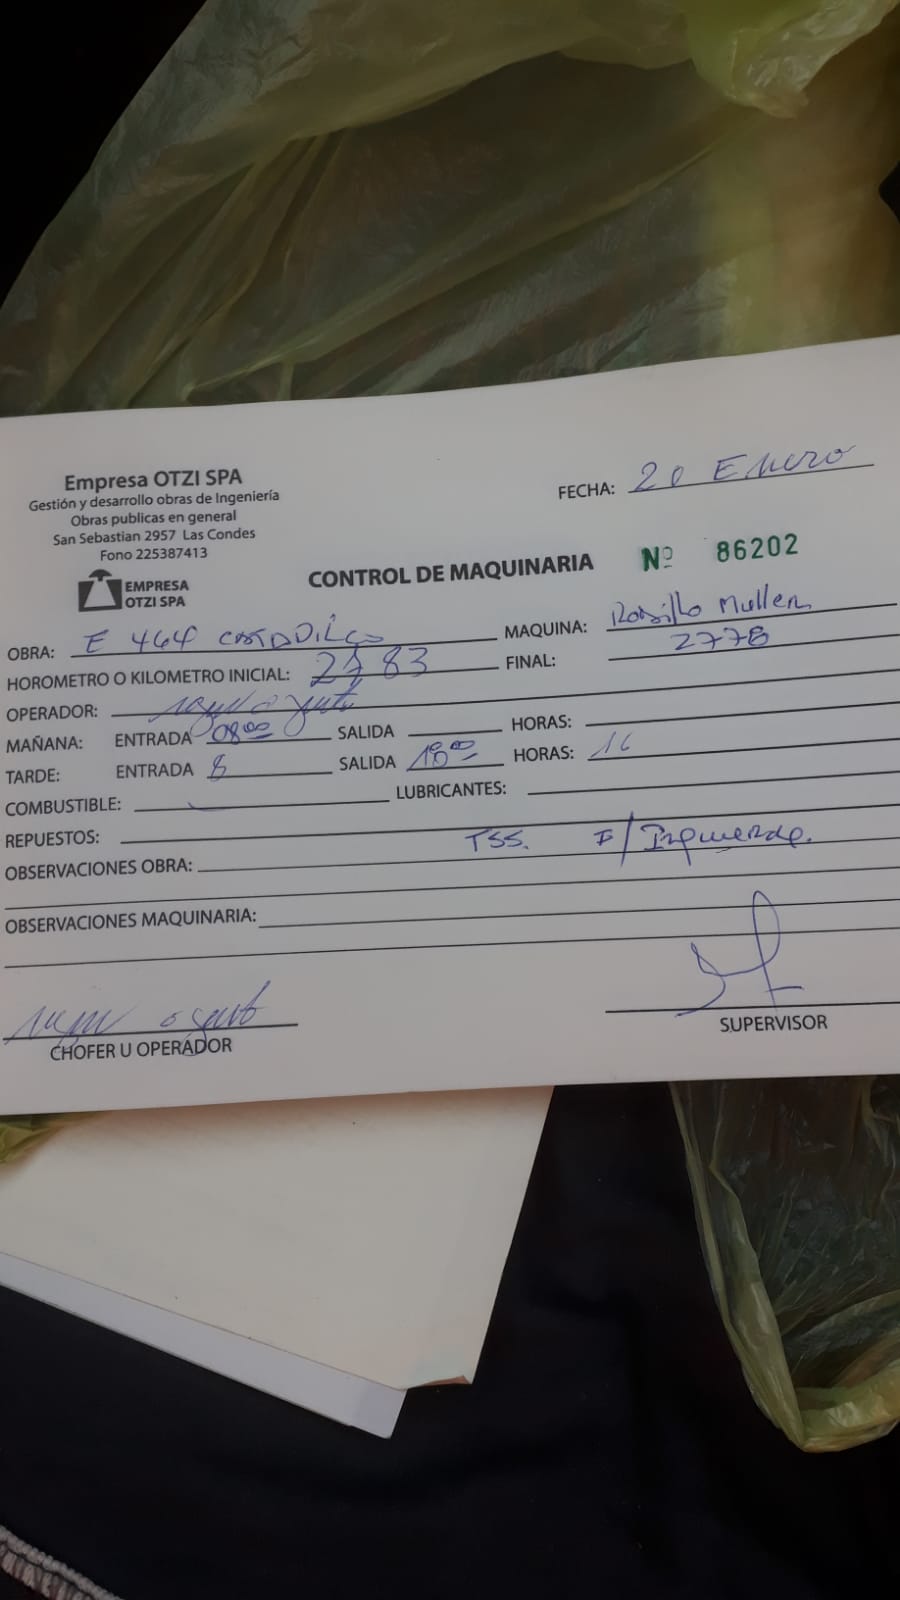 Empresa OTZI SPA
Gestión y desarrollo obras de Ingeniería
Obras publicas en general
San Sebastian 2957 Las Condes
Fono 225387413
EMPRESA
OTZI SPA
FECHA: 20 Enero
CONTROL DE MAQUINARIA Nº 86202
OBRA: E 464
MAQUINA: Rodillo Muller
HOROMETRO O KILOMETRO INICIAL: 2783
FINAL: 2778
OPERADOR:
MAÑANA: ENTRADA 08:00 SALIDA HORAS:
TARDE: ENTRADA 8 SALIDA 18:00 HORAS:
COMBUSTIBLE: LUBRICANTES:
REPUESTOS:
TSS. F/Izquierda.
OBSERVACIONES OBRA:
OBSERVACIONES MAQUINARIA:
CHOFER U OPERADOR
SUPERVISOR